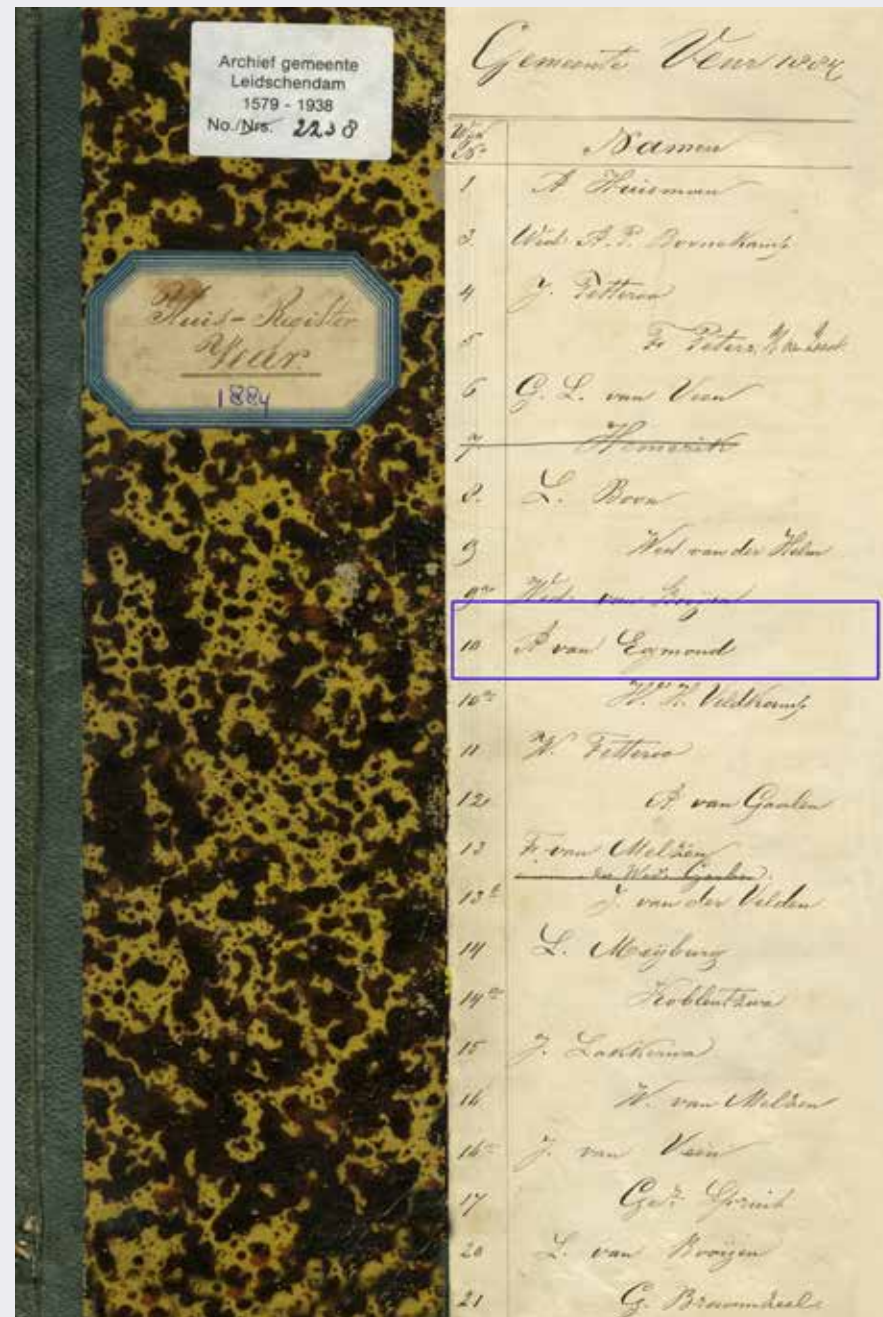 Archief gemeente
Leidschendam
1579 - 1938
No./Nrs. 2238
Huis-Register
Veur.
1884
Gemeente Veur
Namen
1 A Huisman
3. Wed. A. P.
4 J. Fetteroo
5 F. Peters,
6 G. L. van Veen
7.
8. L. Boon
9 Wed van der Helm
9a Wed. van
10 P van Egmond
10a Veldkamp
11 W. Fetteroo
12 P. van Gaalen
13 F. van Melzen
de Wed. Gaalen.
13b J. van der Velden
14 L. Meijburg
14a
15 J.
16 W. van Melzen
16a J. van Veen
17 Spruit
20 L. van Rooijen
21 G.